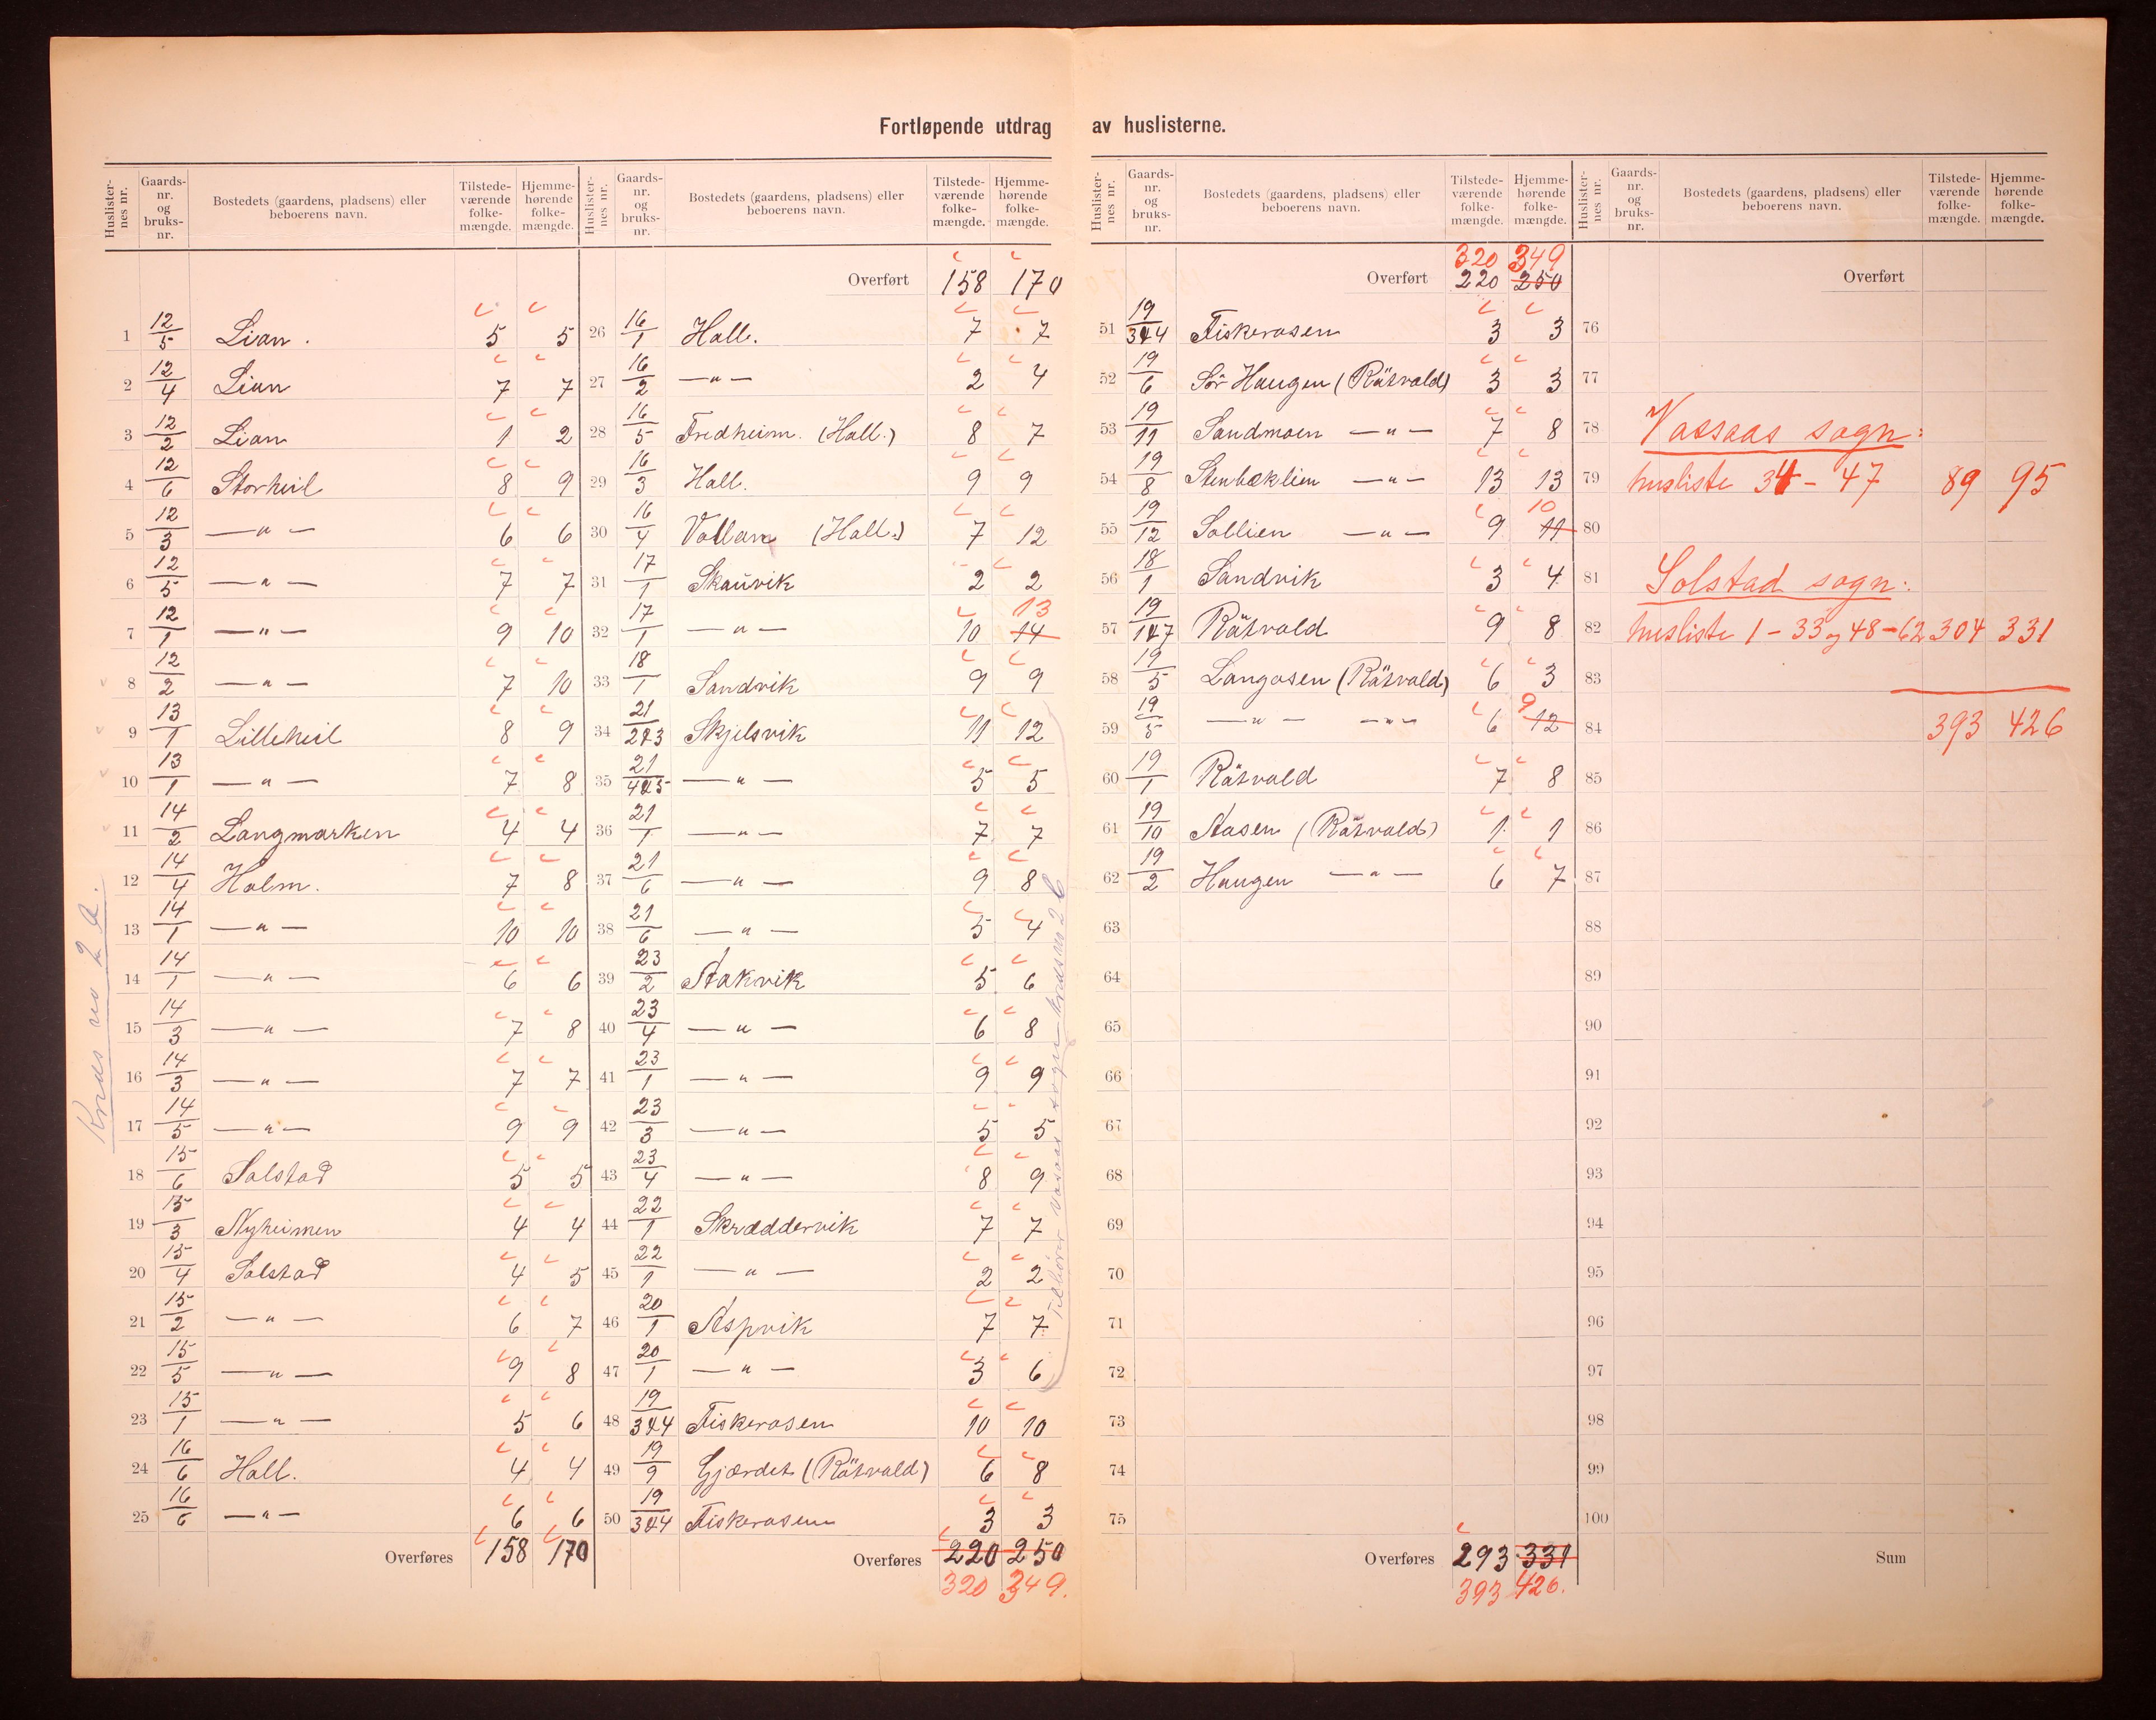 Fortløpende utdrag av huslisterne.
Huslister-nes nr. Gaards-nr. og bruks-nr. Bostedets (gaardens, pladsens) eller beboerens navn. Tilstede-værende folke-mængde. Hjemme-hørende folke-mængde.
1 12/5 Lian. 5 5
2 12/4 Lian 7 7
3 12/2 Lian 1 2
4 12/6 Storheil 8 9
5 12/3 — „ — 6 6
6 12/5 — „ — 7 7
7 12/1 — „ — 9 10
8 12/2 — „ — 7 10
9 13/1 Lilleheil 8 9
10 13/1 — „ — 7 8
11 14/2 Langmarken 4 4
12 14/4 Halm. 7 8
13 14/1 — „ — 10 10
14 14/1 — „ — 6 6
15 14/3 — „ — 7 8
16 14/3 — „ — 7 7
17 14/5 — „ — 9 9
18 15/6 Solstad 5 5
19 15/3 Nyheimen 4 4
20 15/4 Solstad 4 5
21 15/2 — „ — 6 7
22 15/5 — „ — 9 8
23 15/1 — „ — 5 6
24 16/6 Hall. 4 4
25 16/6 — „ — 6 6
Overføres 158 170
Kreds no 2 a.
Huslister-nes nr. Gaards-nr. og bruks-nr. Bostedets (gaardens, pladsens) eller beboerens navn. Tilstede-værende folke-mængde. Hjemme-hørende folke-mængde.
Overført 158 170
26 16/1 Hall. 7 7
27 16/2 — „ — 2 4
28 16/5 Fredheim. (Hall.) 8 7
29 16/3 Hall. 9 9
30 16/4 Vollan (Hall.) 7 12
31 17/1 Skauvik 2 2
32 17/1 — „ — 10 14 13
33 18/1 Sandvik 9 9
34 21/2&3 Skjelsvik 11 12
35 21/4&5 — „ — 5 5
36 21/1 — „ — 7 7
37 21/6 — „ — 9 8
38 21/6 — „ — 5 4
39 23/2 Aakvik 5 6
40 23/4 — „ — 6 8
41 23/1 — „ — 9 9
42 23/3 — „ — 5 5
43 23/4 — „ — 8 9
44 22/1 Skræddervik 7 7
45 22/1 — „ — 2 2
46 20/1 Aspvik 7 7
47 20/1 — „ — 3 6
48 19/3&4 Fiskerosen 10 10
49 19/9 Gjærdet (Råtvald) 6 8
50 19/3&4 Fiskerosen 3 3
Overføres 220 250
320 349.
Tilhører Vasaas sogn kreds no 2 b
Huslister-nes nr. Gaards-nr. og bruks-nr. Bostedets (gaardens, pladsens) eller beboerens navn. Tilstede-værende folke-mængde. Hjemme-hørende folke-mængde.
320 349
Overført 220 250
51 19/3&4 Fiskerosen 3 3
52 19/6 Sör Haugen (Råtvald) 3 3
53 19/11 Sandmoen — „ — 7 8
54 19/8 Stenbæklien — „ — 13 13
55 19/12 Sollien — „ — 9 11 10
56 18/1 Sandvik 3 4
57 19/1&7 Råtvald 9 8
58 19/5 Langosen (Råtvald) 6 3
59 19/5 — „ — — „ — 6 12 9
60 19/1 Råtvald 7 8
61 19/10 Aasen (Råtvald) 1 1
62 19/2 Haugen — „ — 6 7
63
64
65
66
67
68
69
70
71
72
73
74
75
Overføres 293 331
393 426.
Huslister-nes nr. Gaards-nr. og bruks-nr. Bostedets (gaardens, pladsens) eller beboerens navn. Tilstede-værende folke-mængde. Hjemme-hørende folke-mængde.
Overført
76
77
78 Vassaas sogn:
79 husliste 34 - 47 89 95
80
81 Solstad sogn:
82 husliste 1 - 33 og 48 - 62 304 331
83
84 393 426
85
86
87
88
89
90
91
92
93
94
95
96
97
98
99
100
Sum